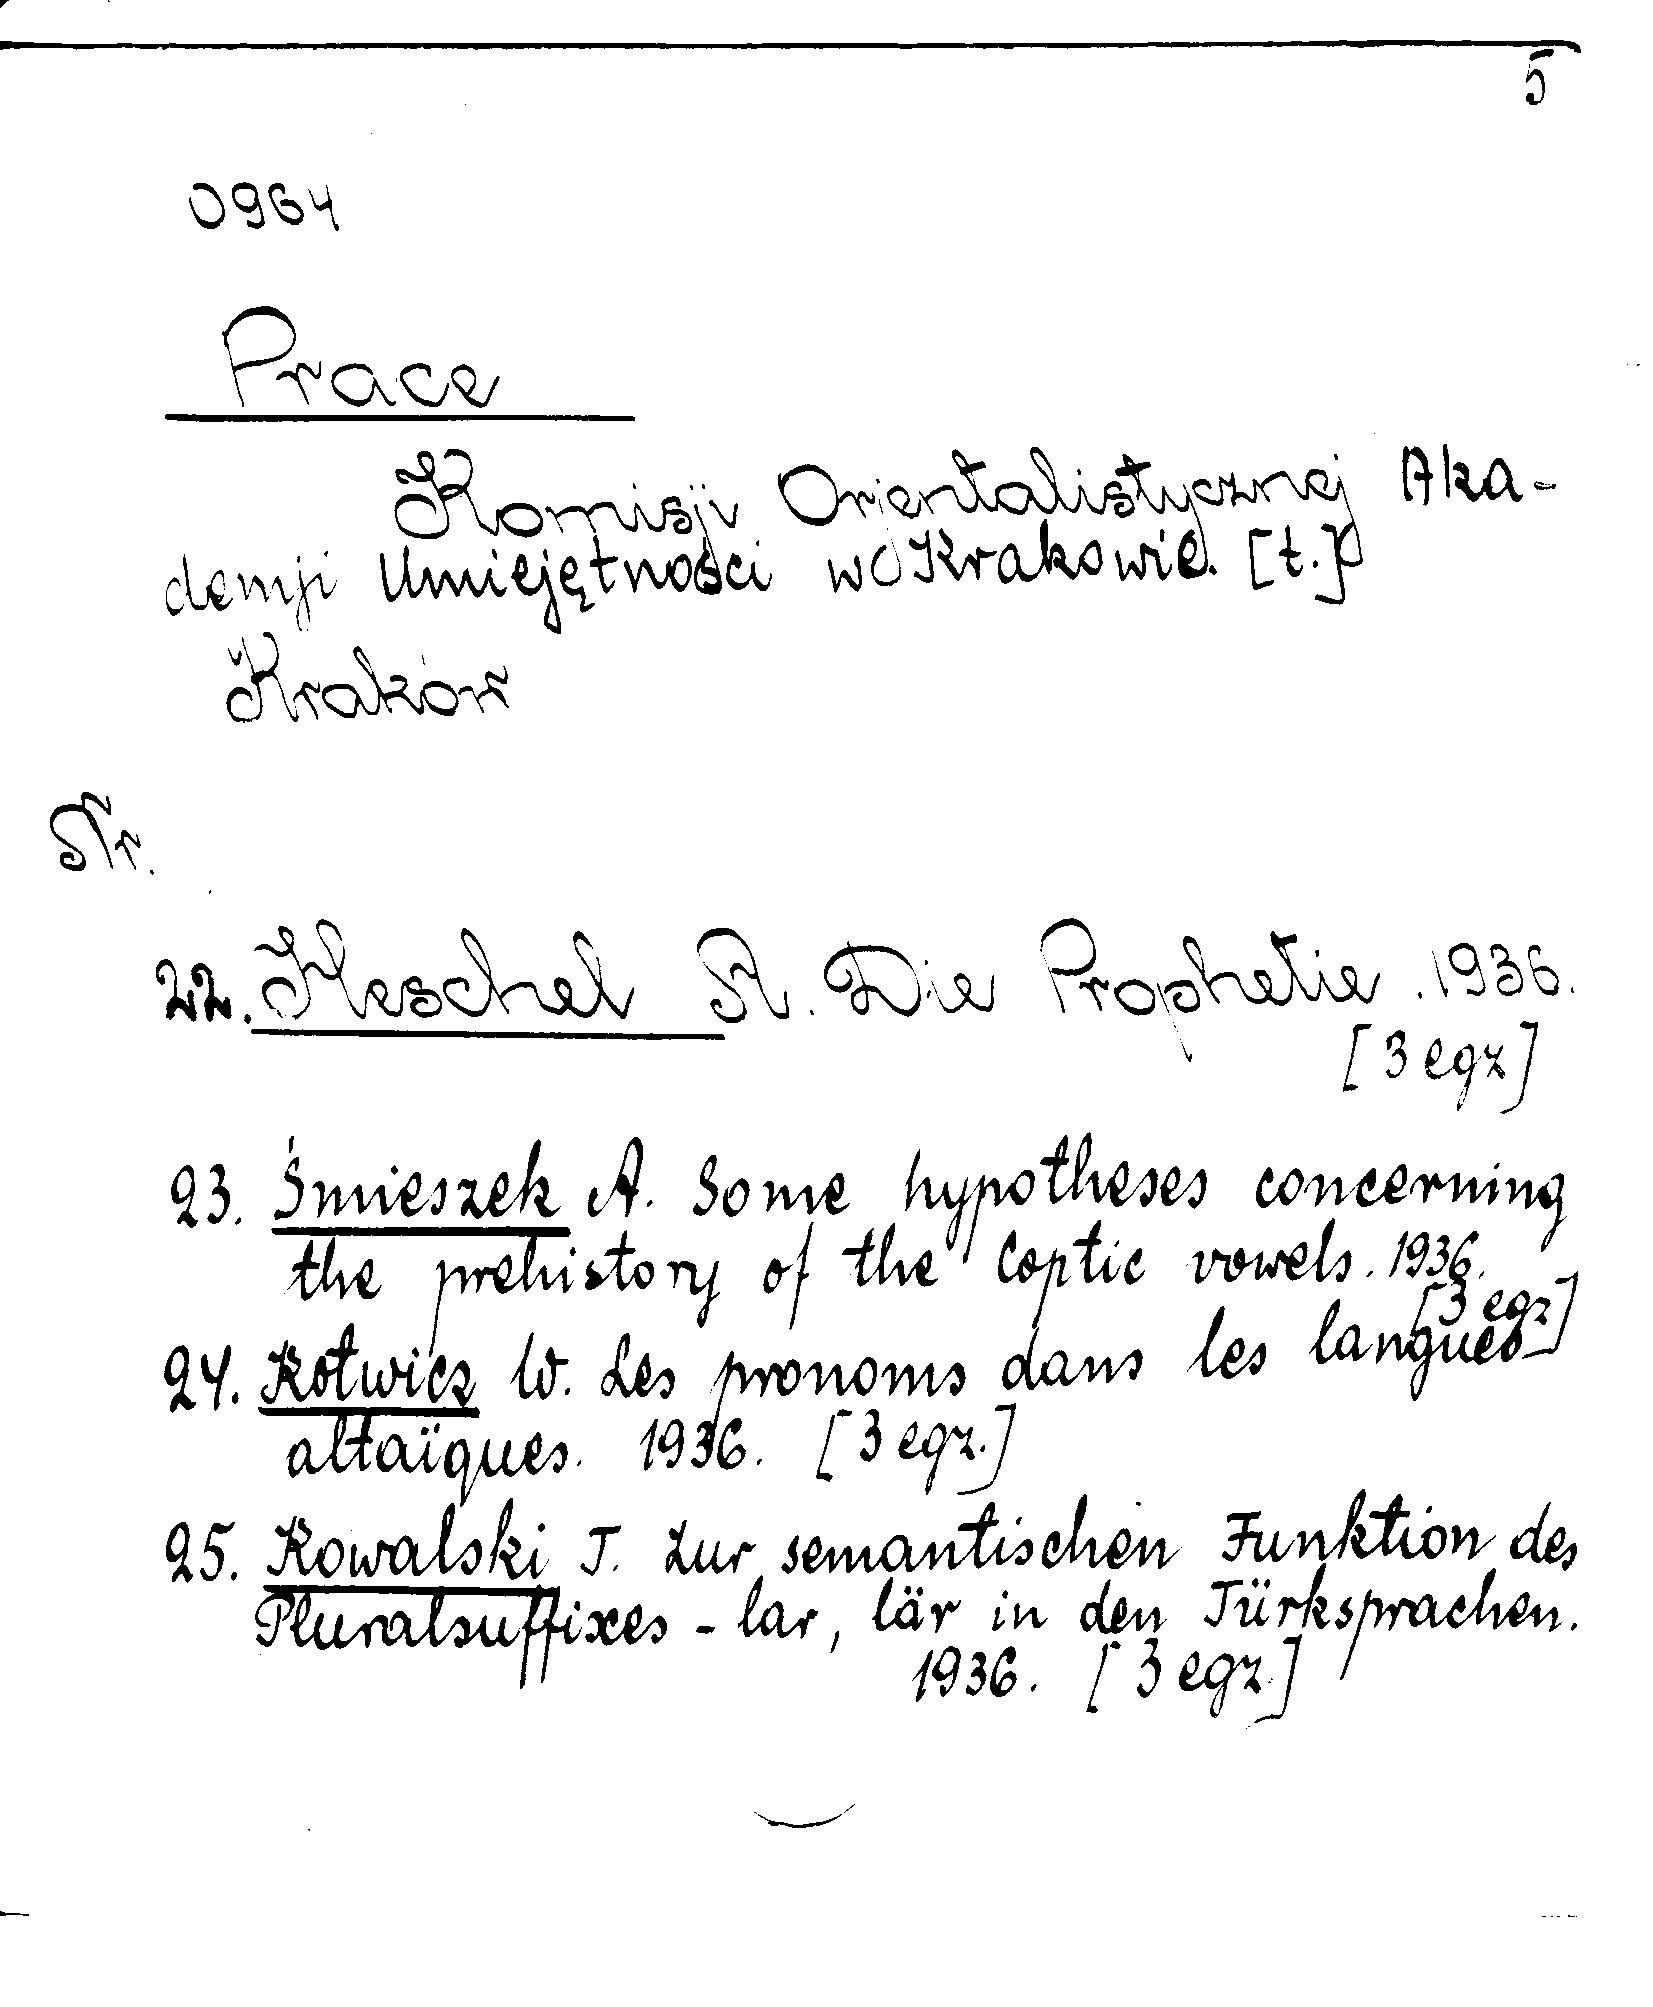 5
0964
Prace
Komisji Orientalistycznej Aka-
demji Umiejętności w Krakowie. [t.]
Kraków
Nr.
22. Heschel A. Die Prophetie. 1936.
[3 egz]
23. Śmieszek A. Some hypotheses concerning
the prehistory of the Coptic vowels. 1936.
[3 egz]
24. Kotwicz W. Les pronoms dans les langues
altaïques. 1936. [3 egz.]
25. Kowalski T. Zur semantischen Funktion des
Pluralsuffixes - lar, lär in den Türksprachen.
1936. [3 egz.]